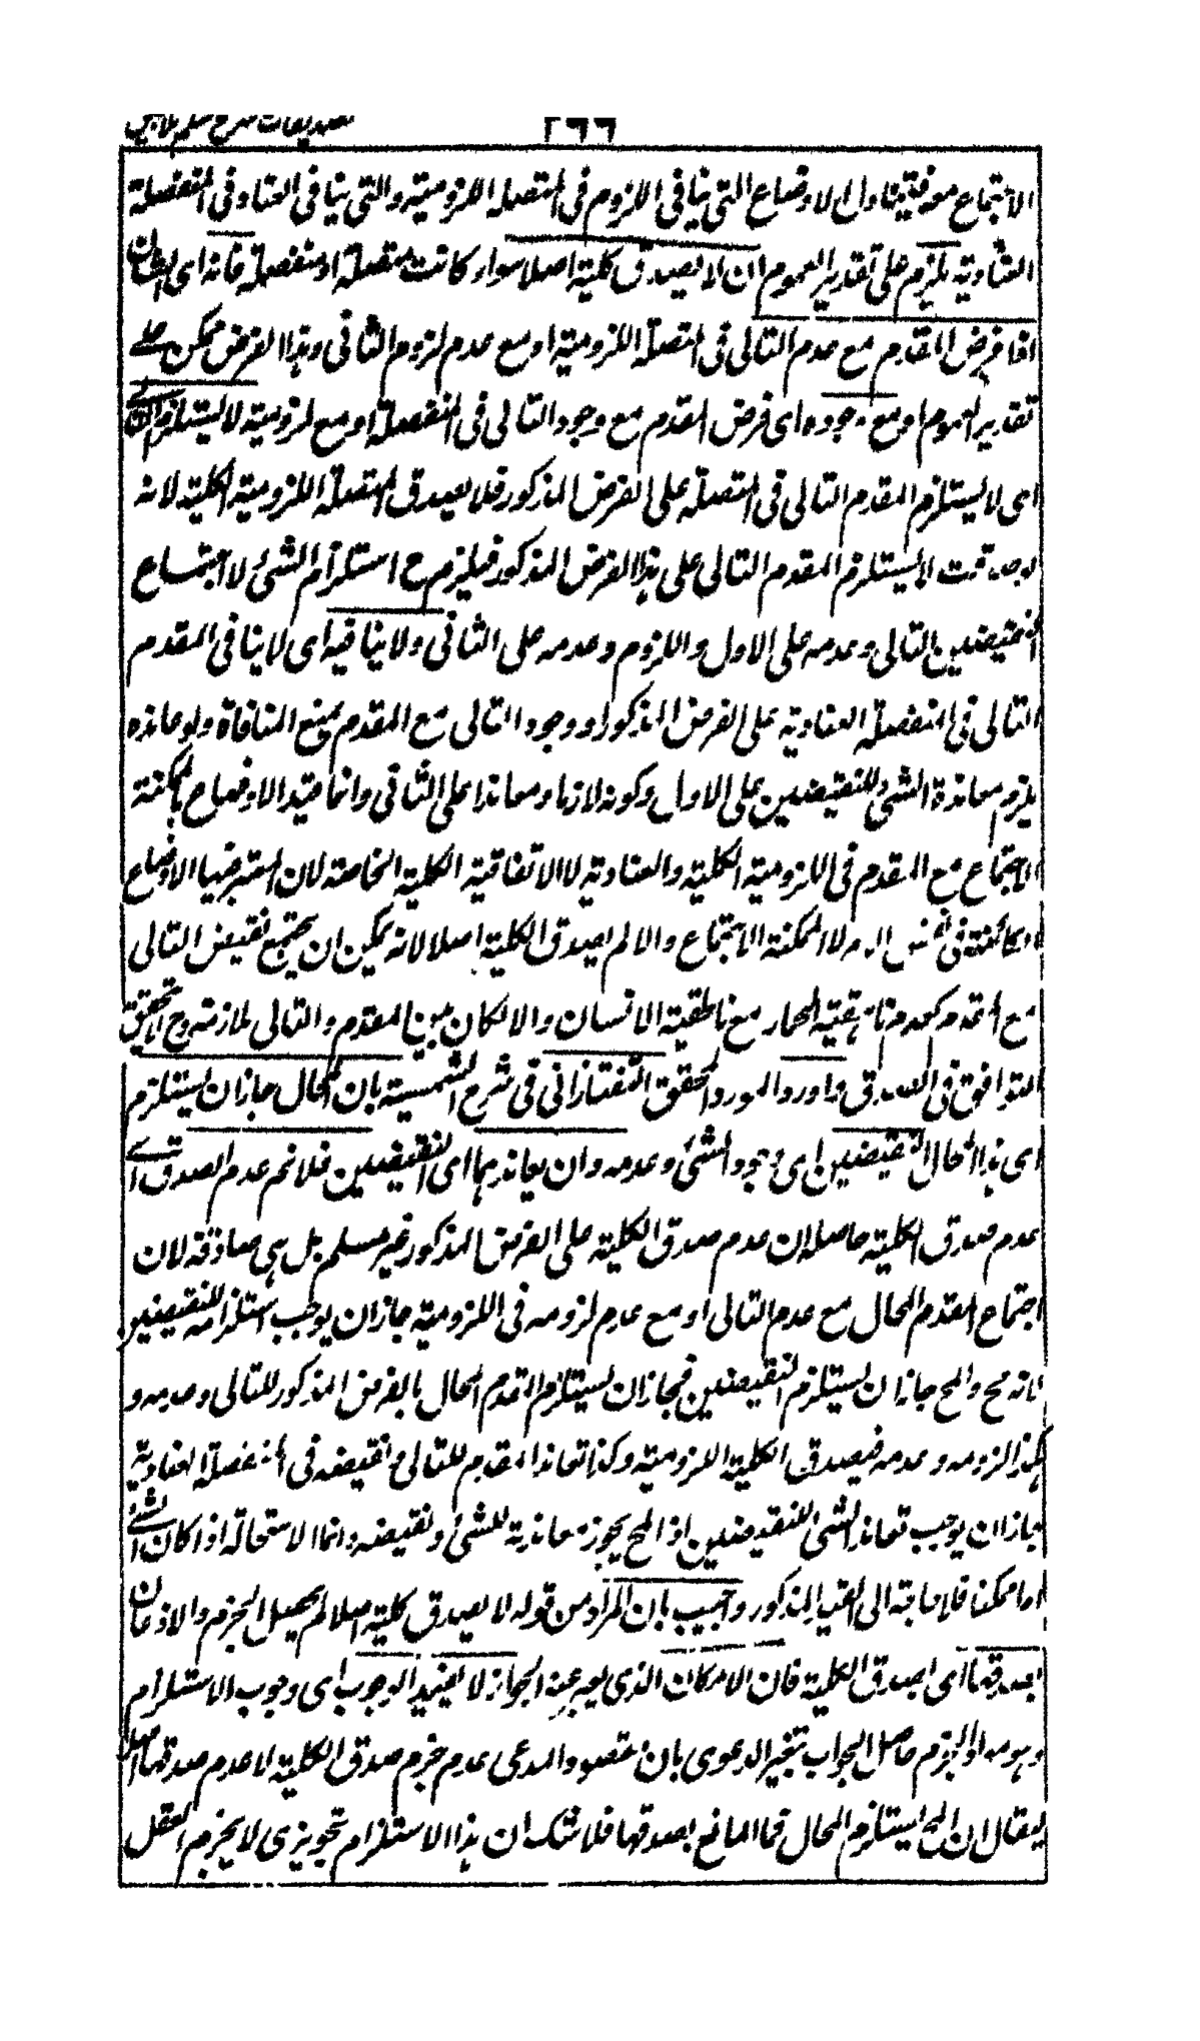 تصديقات شرح سلم ملا مبين ٢٦٦
الاجتماع معه فيتناول الاوضاع التي ينافي اللزوم في المتصلة اللزومية والتي ينافي العناد في المنفصلة
العنادية يلزم على تقدير العموم ان لا يصدق كلية اصلا سواء كانت متصلة او منفصلة فانه اى الشان
اذا فرض المقدم مع عدم التالى في المتصلة اللزومية او مع عدم لزوم التالى وهذا الفرض ممكن على
تقدير العموم او مع وجوده اى فرض المقدم مع وجود التالى في المنفصلة او مع لزومية لا يستلزم التالى
اى لا يستلزم المقدم التالى في المتصلة على الفرض المذكور فلا يصدق المتصلة اللزومية الكلية لانه
لو صدقت لاستلزم المقدم التالى على هذا الفرض المذكور فيلزم ح استلزام الشئ لاجتماع
النقيضين التالى وعدمه على الاول واللزوم وعدمه على الثانى ولا ينافيه اى لا ينافى المقدم
التالى في المنفصلة العنادية على الفرض المذكور ووجود التالى مع المقدم يمنع المنافاة ولو عانده
يلزم معاندة الشئ للنقيضين على الاول وكونه لازما ومعاندا على الثانى وانما قيد الاوضاع بالممكنة
الاجتماع مع المقدم في اللزومية الكلية والعنادية لا الاتفاقية الكلية الخاصة لان المعتبر فيها الاوضاع
الكائنة في نفس الامر لا الممكنة الاجتماع والا لم يصدق الكلية اصلا لانه يمكن ان يجتمع نقيض التالى
مع المقدم كعدم ناهقية الحمار مع ناطقية الانسان والا لكان بين المقدم والتالى ملازمة وح لا يتحقق
التوافق في الصدق واورد المورد المحقق التفتازانى في شرح الشمسية بان المحال جاز ان يستلزم
اى هذا المحال النقيضين اى وجود الشئ وعدمه وان يعاندهما اى النقيضين فلا نم عدم الصدق اى
عدم صدق الكلية حاصله ان عدم صدق الكلية على الفرض المذكور غير مسلم بل هى صادقة لان
اجتماع المقدم المحال مع عدم التالى او مع عدم لزومه في اللزومية جاز ان يوجب استلزامه للنقيضين
فانه مح والمح جاز ان يستلزم النقيضين فجاز ان يستلزم المقدم المحال بالفرض المذكور للتالى وعدمه و
هكذا لزومه وعدمه فيصدق الكلية اللزومية وكذا تعاند المقدم للتالى ونقيضه في المنفصلة العنادية
جاز ان يوجب تعاند الشئ للنقيضين اذ المح يجوز معاندته للشئ ونقيضه وانما الاستحالة اذا كان الشئ
امرا ممكنا فلا حاجة الى القيد المذكور واجيب بان المراد من قوله لا يصدق كلية اصلا لم يحصل الجزم والاذعان
بصدقها اى بصدق الكلية فان الامكان الذى يعبر عنه الجواز لا يفيد الوجوب اى وجوب الاستلزام
وهو مدار الجزم حاصل الجواب تغيير الدعوى بان المقصود والمدعى عدم جزم صدق الكلية لا عدم صدقها اصلا
ليقال ان المح يستلزم المحال فما المانع بصدقها فلا شك ان هذا الاستلزام تجويزى لا يجزم العقل